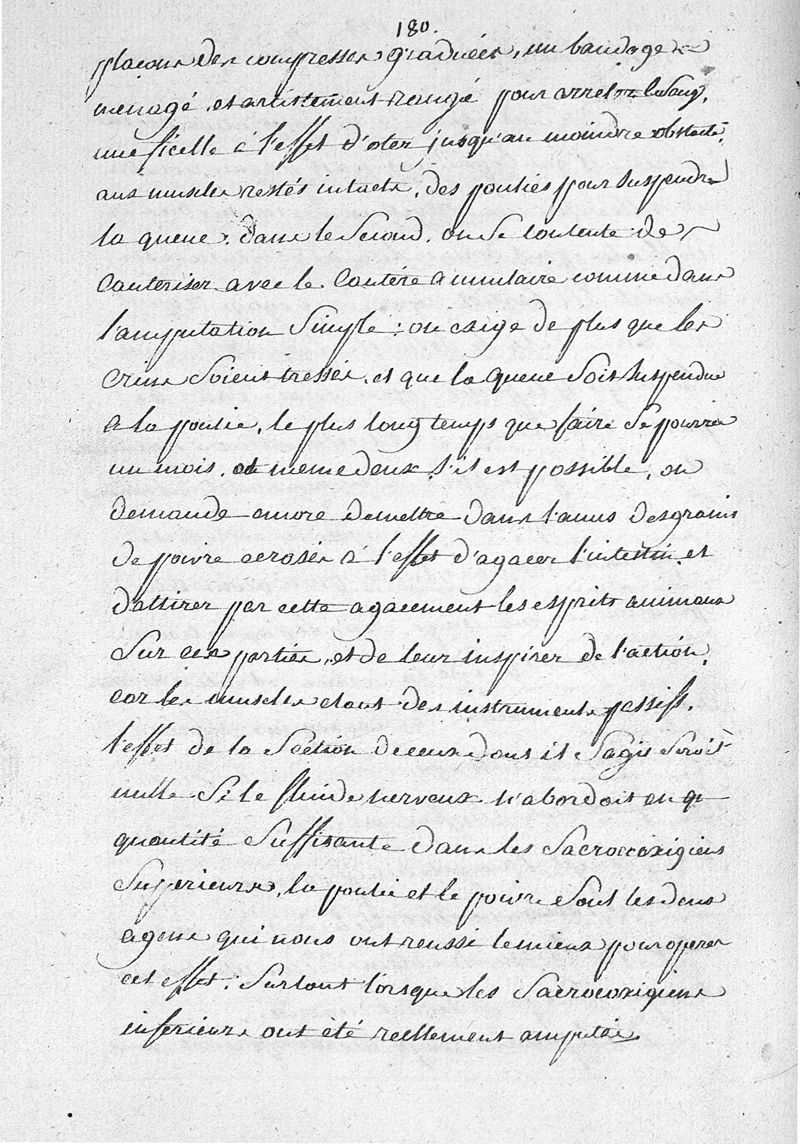 180.
plaçons des compresses graduées, un bandage
menagé, et artistement rangé pour arreter le sang,
une ficelle à l'effet d'oter jusqu'au moindre obstacle
aux muscles restés intacts, des poulies pour suspendre
la queue. dans le second, on se contente de
cauteriser avec le cautère annulaire comme dans
l'amputation simple : on exige de plus que les
crins soient tressés, et que la queue soit suspendue
a la poulie, le plus longtemps que faire se pourra
un mois, et meme deux s'il est possible, on
demande encore de mettre dans l'anus des grains
de poivre ecrasés à l'effet d'agacer l'intestin, et
d'attirer par cette agacement les esprits animaux
sur ces parties, et de leur inspirer de l'action,
car les muscles etant des instruments passifs,
l'effet de la section de ceux dont il s'agit seroit
nulle si le fluide nerveux n'abordoit en q
quantité suffisante dans les sacrocoxigiens
superieurs, la poulie et le poivre sont les deux
agens qui nous ont reussi le mieux pour operer
cet effet : surtout lorsque les sacrocoxigiens
inferieurs ont eté reellement amputés